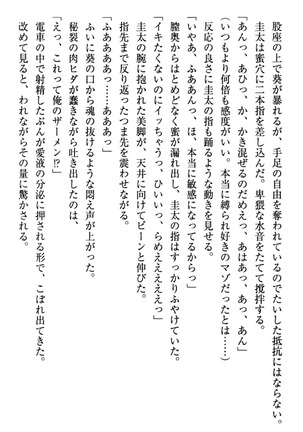 股座の上で葵が暴れるが、手足の自由を奪われているのでたいした抵抗にはならない。
圭太は蜜穴に二本指を差し込んだ。卑猥な水音をたてて撹拌する。
「あんっ、あひっ、か、かき混ぜるのだめえっ、あはあっ、あっ、あん」
(いつもより何倍も感度がいい。本当に縛られ好きのマゾだったとは……)
反応の良さに圭太の指も踊るような動きを見せる。
「いやあ、ふああんっ、ほ、本当に敏感になってるからっ」
膣奥からはとめどなく蜜が漏れ出し、圭太の指はすっかりふやけていた。
「イキたくないのにイッちゃうっ、ひいいっ、らめええええっ」
圭太の腕に抱かれた美脚が、天井に向けてピーンと伸びた。
指先まで反り返ったつま先を震わせながら。
「ふああああっ……イッ、ああああっ」
ふいに葵の口から魂の抜けるような悶え声が上がった。
秘裂の肉ヒダが蠢きながら吐き出したのは、
「えっ、これって俺のザーメン!?」
電車の中で射精したぶんが愛液の分泌に押される形で、こぼれ出てきた。
改めて見ると、われながらその量に驚かされる。